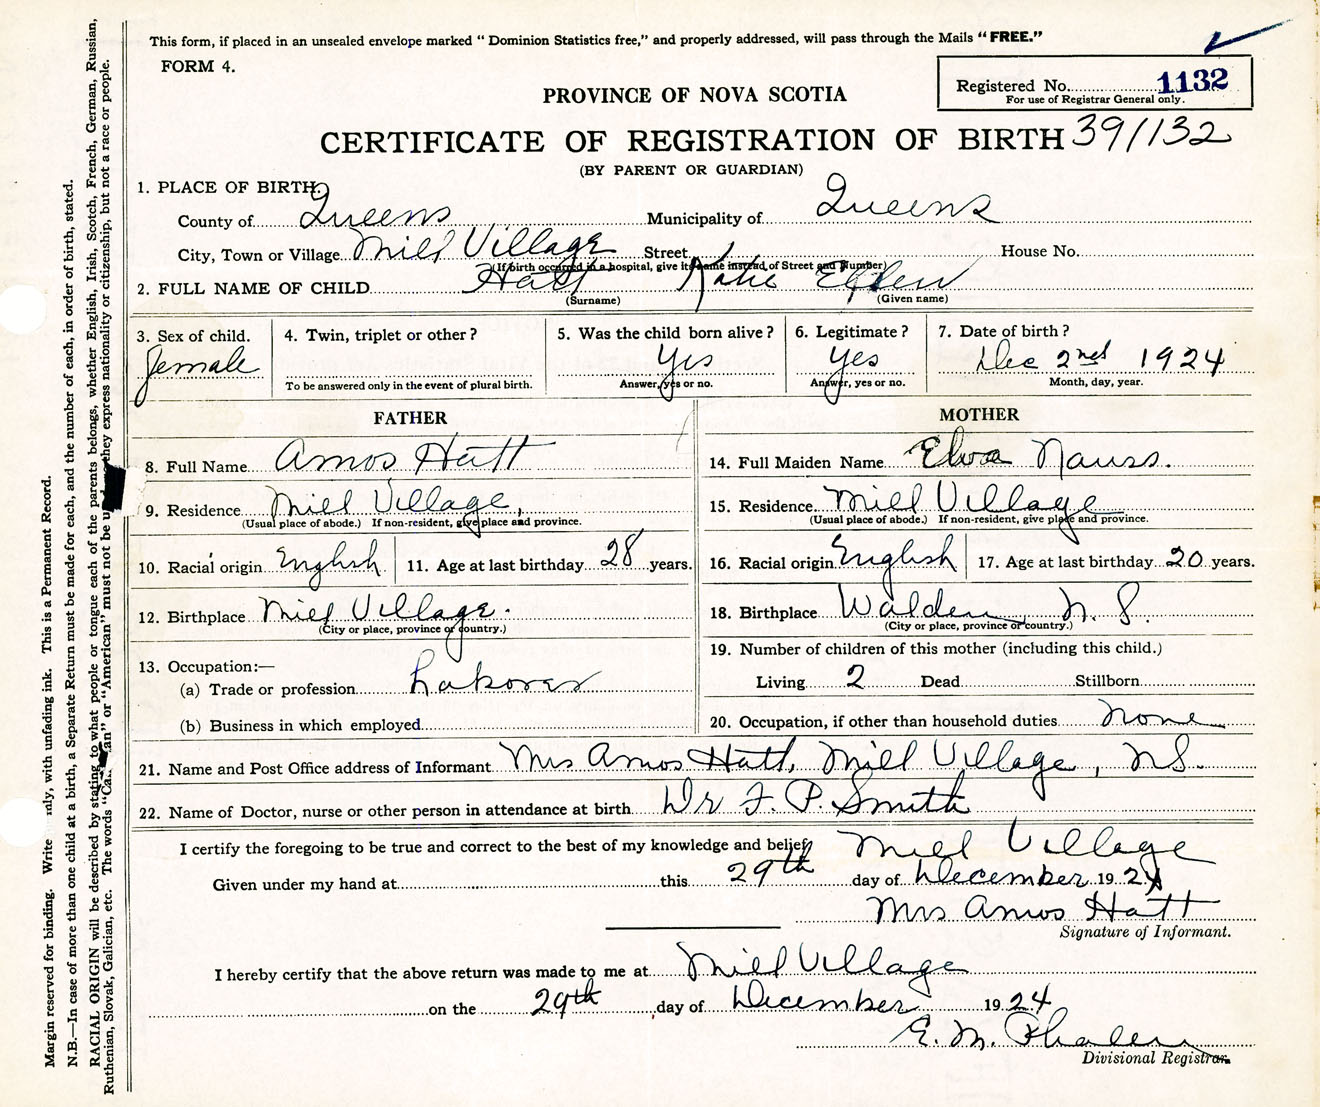 This form, if placed in an unsealed envelope marked " Dominion Statistics free," and properly addressed, will pass through the Mails " FREE."
FORM 4.
Registered No. 1132
For use of Registrar General only.
PROVINCE OF NOVA SCOTIA
CERTIFICATE OF REGISTRATION OF BIRTH 39/132
(BY PARENT OR GUARDIAN)
1. PLACE OF BIRTH:
County of Queens Municipality of Queens
City, Town or Village Mill Village Street House No.
(If birth occurred in a hospital, give its name instead of Street and Number)
2. FULL NAME OF CHILD Hatt Katie
(Surname) (Given name)
3. Sex of child. 4. Twin, triplet or other ? 5. Was the child born alive ? 6. Legitimate ? 7. Date of birth ?
female yes yes Dec 2nd 1924
To be answered only in the event of plural birth. Answer, yes or no. Answer, yes or no. Month, day, year.
FATHER
8. Full Name Amos Hatt
9. Residence Mill Village,
(Usual place of abode.) If non-resident, give place and province.
10. Racial origin English 11. Age at last birthday 28 years.
12. Birthplace Mill Village.
(City or place, province or country.)
13. Occupation:—
(a) Trade or profession Laborer
(b) Business in which employed
MOTHER
14. Full Maiden Name Elva Nauss.
15. Residence Mill Village
(Usual place of abode.) If non-resident, give place and province.
16. Racial origin English 17. Age at last birthday 20 years.
18. Birthplace Walden N. S.
(City or place, province or country.)
19. Number of children of this mother (including this child.)
Living 2 Dead Stillborn
20. Occupation, if other than household duties none
21. Name and Post Office address of Informant Mrs Amos Hatt, Mill Village, N.S.
22. Name of Doctor, nurse or other person in attendance at birth Dr F. P. Smith
I certify the foregoing to be true and correct to the best of my knowledge and belief,
Given under my hand at Mill Village this 29th day of December 1924
Mrs Amos Hatt
Signature of Informant.
I hereby certify that the above return was made to me at Mill Village
on the 29th day of December 1924
E. M. Phalen
Divisional Registrar.
Margin reserved for binding. Write ndy, with unfading ink. This is a Permanent Record.
N.B.—In case of more than one child at a birth, a Separate Return must be made for each, and the number of each, in order of birth, stated.
RACIAL ORIGIN will be described by stating to what people or tongue each of the parents belongs, whether English, Irish, Scotch, French, German, Russian,
Ruthenian, Slovak, Galician, etc. The words "Ca an" or "American" must not be u they express nationality or citizenship, but not a race or people.